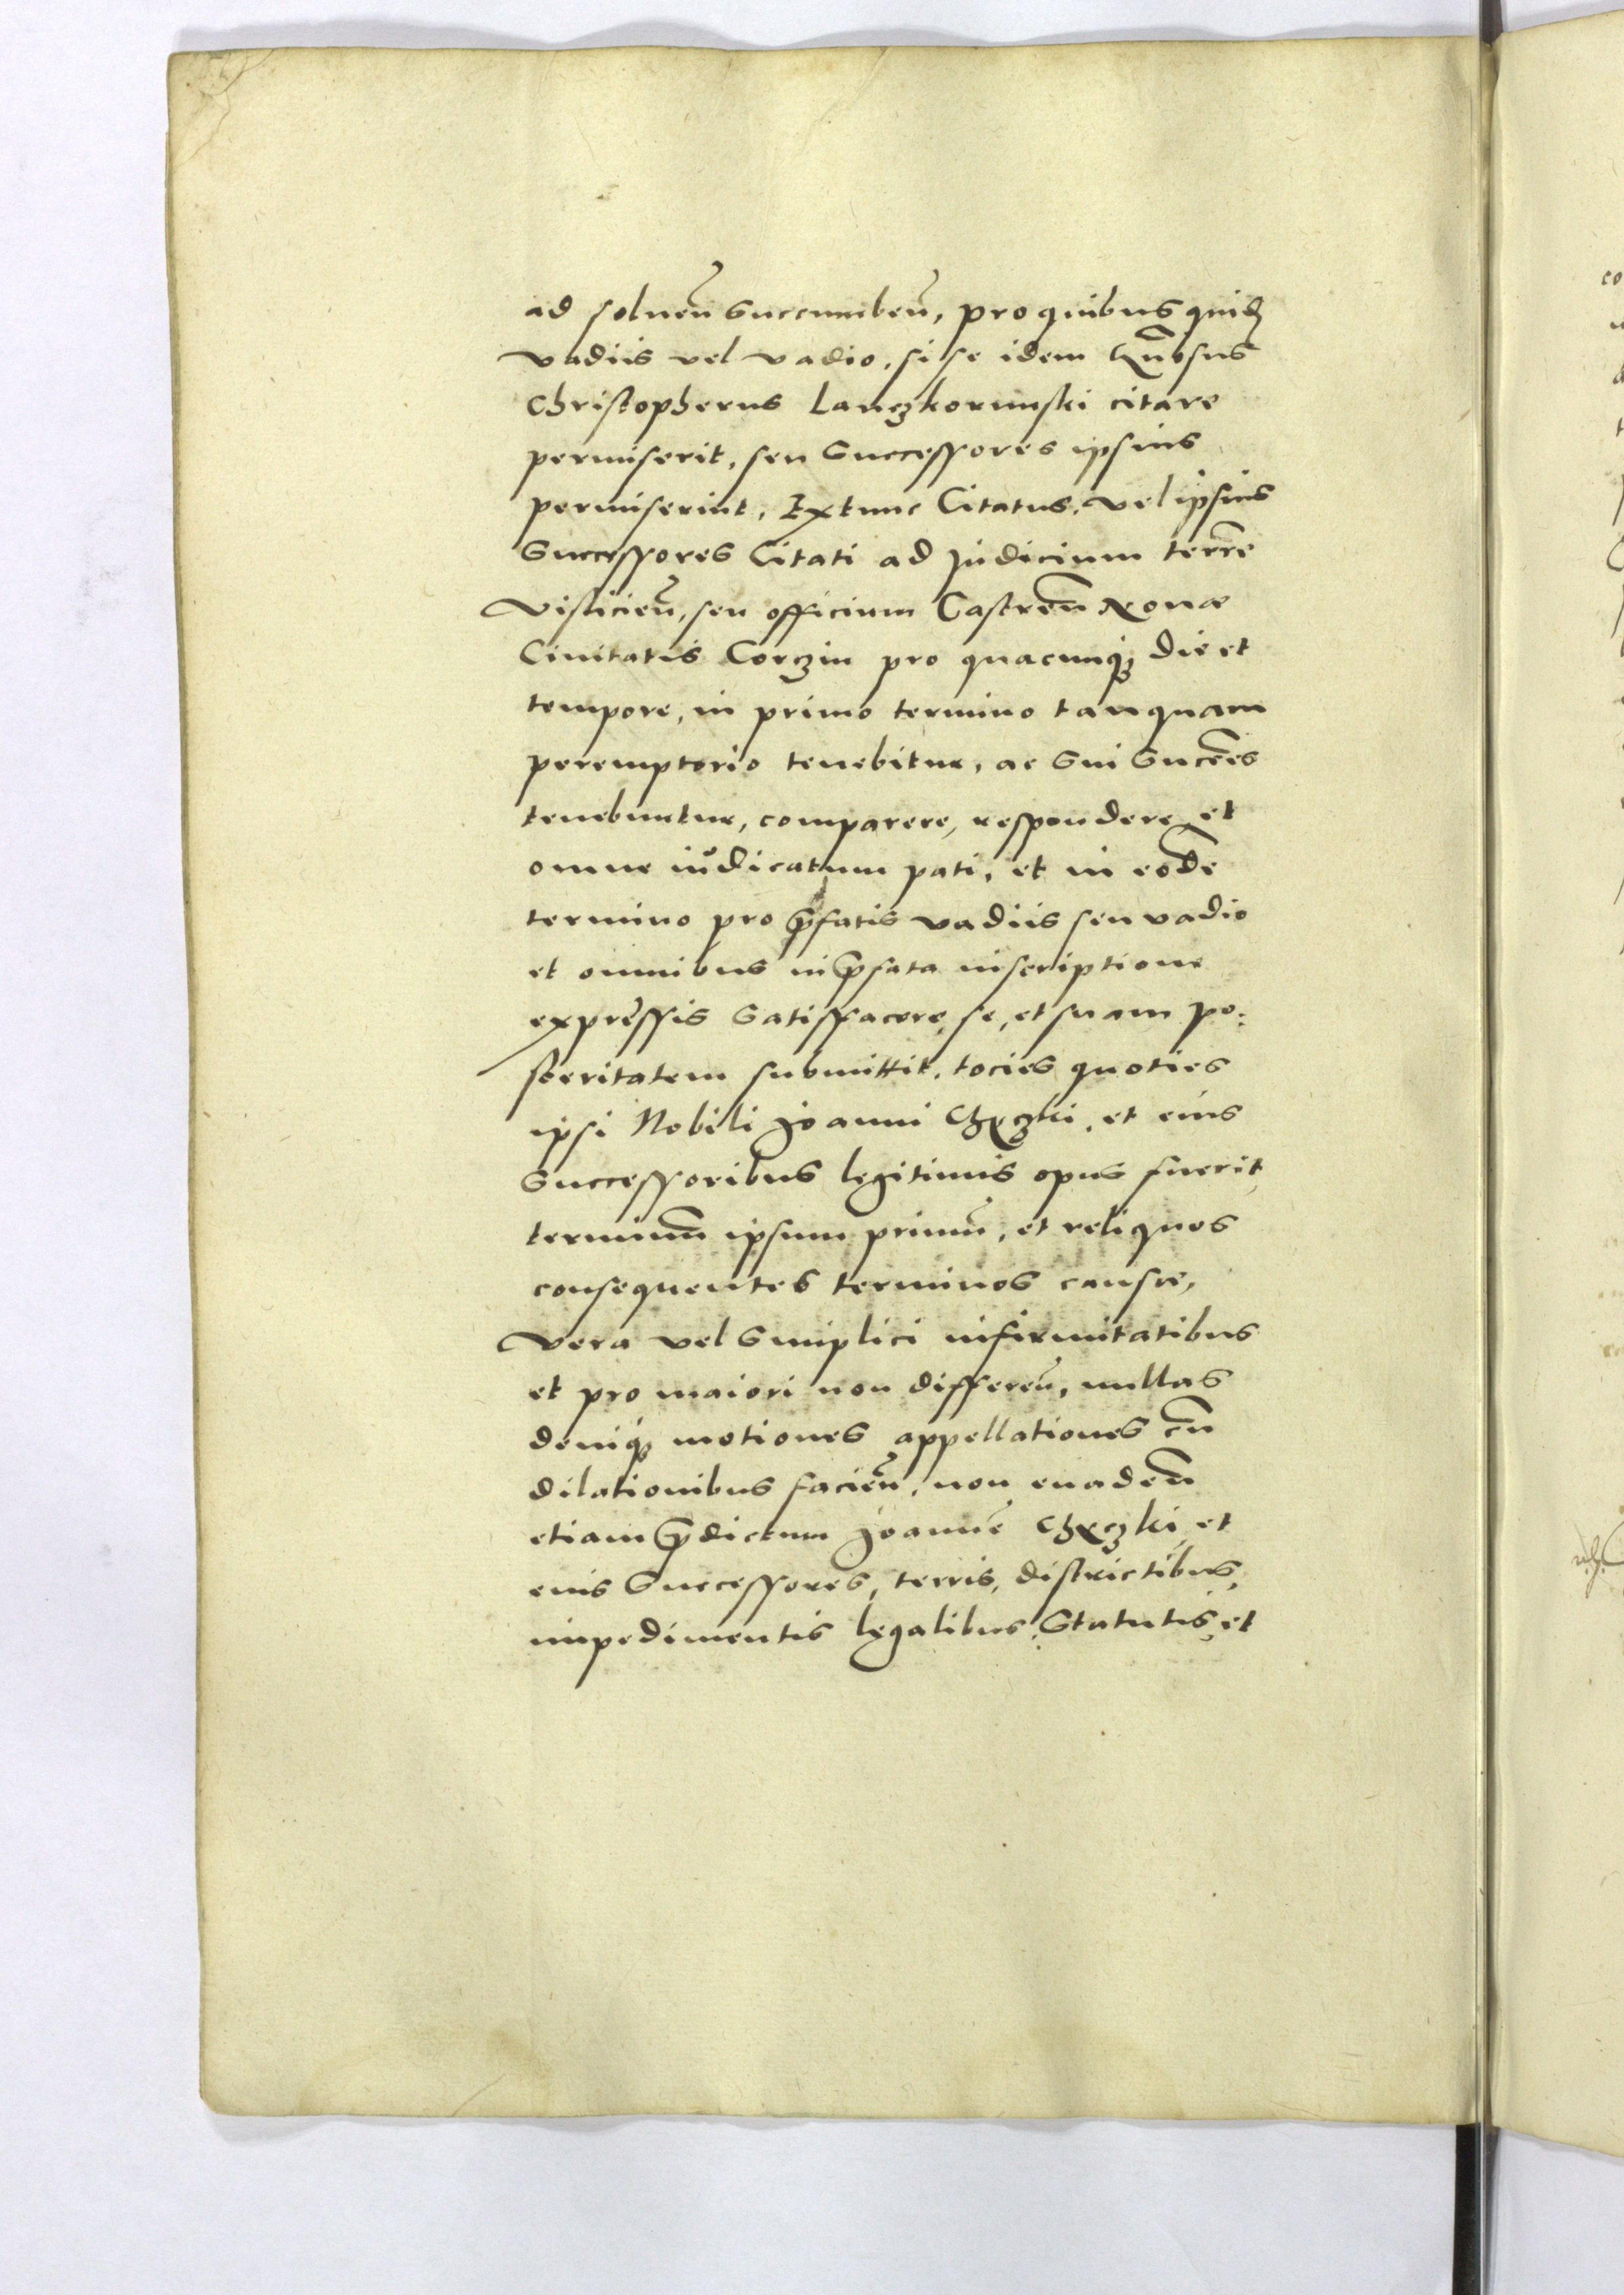 ad soluen̄ Succumben̄, pro quibus quid̨
vadiis vel vadio, si se idem Gn̄osus
Christopherus Lanczkorunski citare
permiserit, seu Successores ipsius
permiserint, Extunc Citatus, vel ipsius
Successores Citati ad Judicium terrē
Visliciēn, seu officium Castren̄ Nouæ
Ciuitatis Corczin pro quacunq₃ die et
tempore, in primo termino tanquam
peremptorio tenebitur, ac Sui Succ̄es
tenebuntur, comparere, respondere et
omne iudicatum pati, et in eod̄e
termino pro p̄fatis vadiis seu vadio
et omnibus in p̄fata inscriptione
expressis Satisfacere, se, et suam po:
steritatem submittit, tocies quoties
ipsi Nobili Joanni et eius
Successoribus legitimis opus fuerit,
terminū ipsum primū, et reliquos
consequentes terminos causæ,
Vera vel Simplici infirmitatibus
et pro maiori non differen̄, nullas
deniq₃ motiones appellationes cū
dilationibus facien̄, non euaden̄
etiam p̄dictum Joannē et
eius Successores, terris, districtibus,
impedimentis legalibus, Statutis, et